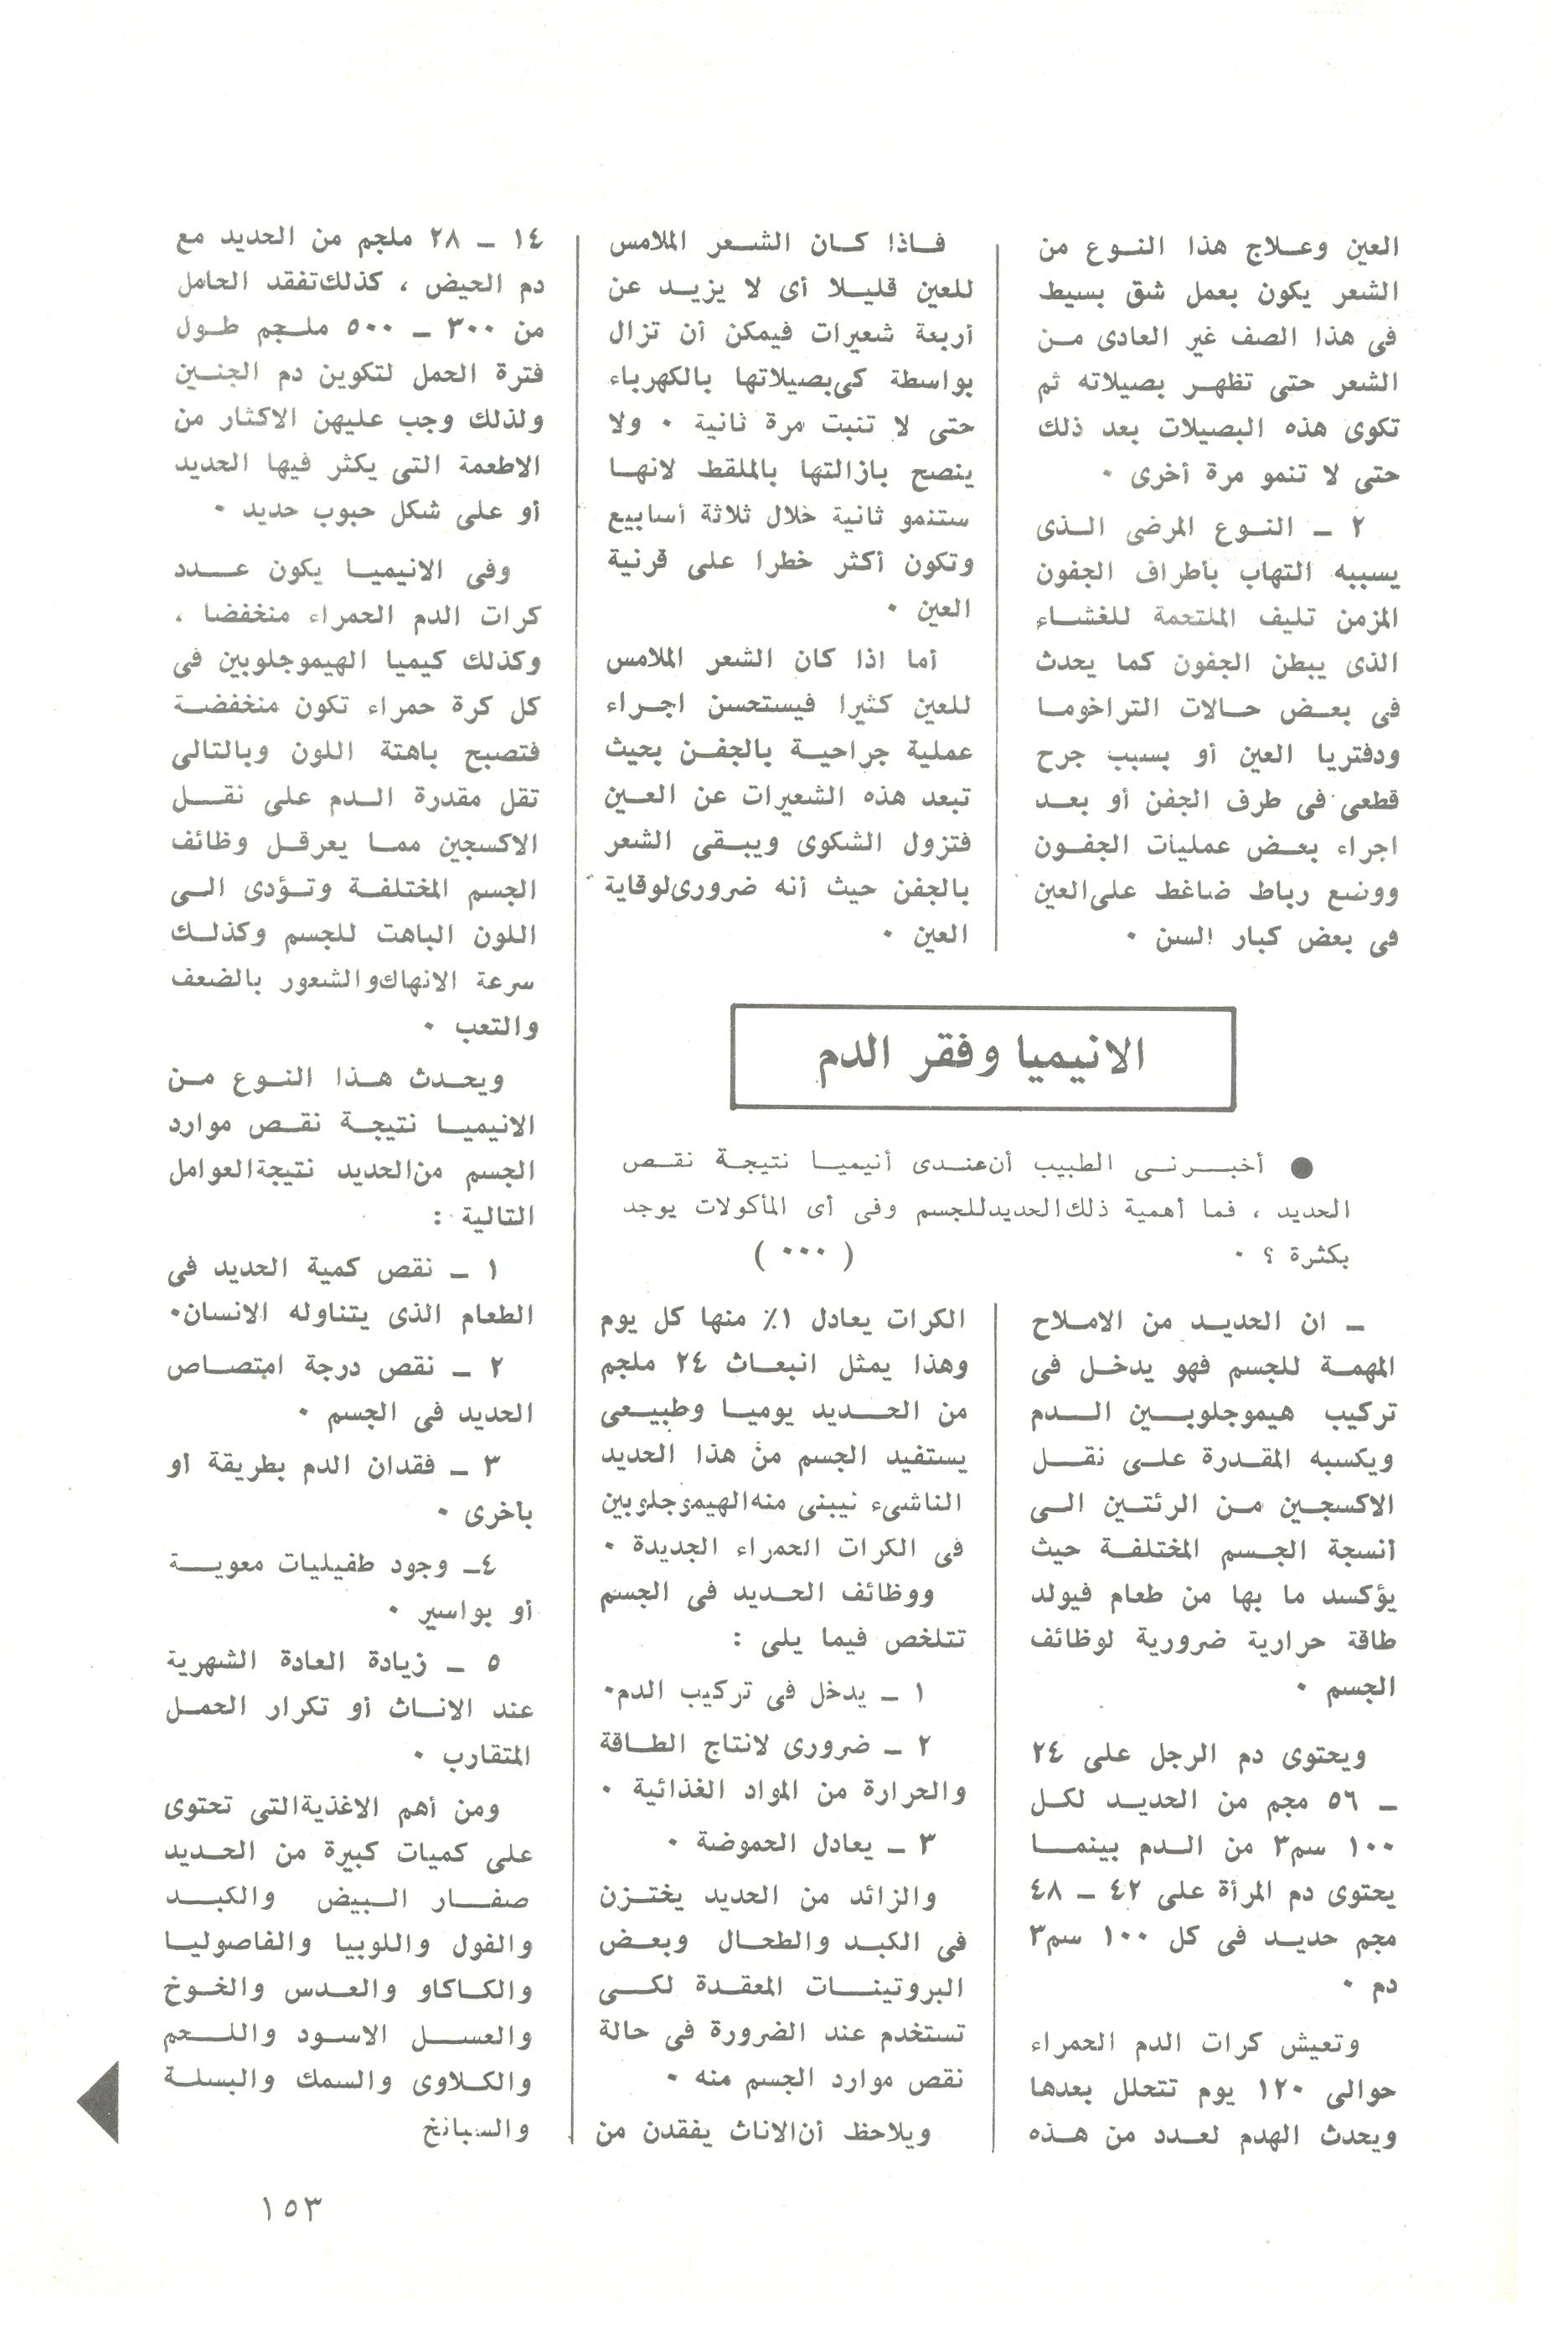 العين وعلاج هذا النوع من
الشعر يكون بعمل شق بسيط
فى هذا الصف غير العادى من
الشعر حتى تظهر بصيلاته ثم
تكوى هذه البصيلات بعد ذلك
حتى لا تنمو مرة أخرى ٠
٢ ـ النوع المرضى الذى
يسببه التهاب بأطراف الجفون
المزمن تليف الملتحمة للغشاء
الذى يبطن الجفون كما يحدث
فى بعض حالات التراخوما
ودفتريا العين أو بسبب جرح
قطعى فى طرف الجفن أو بعد
اجراء بعض عمليات الجفون
ووضع رباط ضاغط على العين
فى بعض كبار السن ٠
فاذا كان الشعر الملامس
للعين قليلا أى لا يزيد عن
أربعة شعيرات فيمكن أن تزال
بواسطة كى بصيلاتها بالكهرباء
حتى لا تنبت مرة ثانية ٠ ولا
ينصح بازالتها بالملقط لانها
ستنمو ثانية خلال ثلاثة أسابيع
وتكون أكثر خطرا على قرنية
العين ٠
أما اذا كان الشعر الملامس
للعين كثيرا فيستحسن اجراء
عملية جراحية بالجفن بحيث
تبعد هذه الشعيرات عن العين
فتزول الشكوى ويبقى الشعر
بالجفن حيث أنه ضرورى لوقاية
العين ٠
الانيميا وفقر الدم
● أخبرنى الطبيب أن عندى أنيميا نتيجة نقص
الحديد ، فما أهمية ذلك الحديد للجسم وفى أى المأكولات يوجد
بكثرة ؟ ٠ ( ٠٠٠ )
ـ ان الحديد من الاملاح
المهمة للجسم فهو يدخل فى
تركيب هيموجلوبين الدم
ويكسبه المقدرة على نقل
الاكسجين من الرئتين الى
أنسجة الجسم المختلفة حيث
يؤكسد ما بها من طعام فيولد
طاقة حرارية ضرورية لوظائف
الجسم ٠
ويحتوى دم الرجل على ٢٤
ـ ٥٦ مجم من الحديد لكل
١٠٠ سم٣ من الدم بينما
يحتوى دم المرأة على ٤٢ ـ ٤٨
مجم حديد فى كل ١٠٠ سم٣
دم ٠
وتعيش كرات الدم الحمراء
حوالى ١٢٠ يوم تتحلل بعدها
ويحدث الهدم لعدد من هذه
الكرات يعادل ١٪ منها كل يوم
وهذا يمثل انبعاث ٢٤ ملجم
من الحديد يوميا وطبيعى
يستفيد الجسم من هذا الحديد
الناشىء نيبنى منه الهيموجلوبين
فى الكرات الحمراء الجديدة ٠
ووظائف الحديد فى الجسم
تتلخص فيما يلى :
١ ـ يدخل فى تركيب الدم٠
٢ ـ ضرورى لانتاج الطاقة
والحرارة من المواد الغذائية ٠
٣ ـ يعادل الحموضة ٠
والزائد من الحديد يختزن
فى الكبد والطحال وبعض
البروتينات المعقدة لكى
تستخدم عند الضرورة فى حالة
نقص موارد الجسم منه ٠
ويلاحظ أن الاناث يفقدن من
١٤ ـ ٢٨ ملجم من الحديد مع
دم الحيض ، كذلك تفقد الحامل
من ٣٠٠ ـ ٥٠٠ ملجم طول
فترة الحمل لتكوين دم الجنين
ولذلك وجب عليهن الاكثار من
الاطعمة التى يكثر فيها الحديد
أو على شكل حبوب حديد ٠
وفى الانيميا يكون عدد
كرات الدم الحمراء منخفضا ،
وكذلك كيميا الهيموجلوبين فى
كل كرة حمراء تكون منخفضة
فتصبح باهتة اللون وبالتالى
تقل مقدرة الدم على نقل
الاكسجين مما يعرقل وظائف
الجسم المختلفة وتؤدى الى
اللون الباهت للجسم وكذلك
سرعة الانهاك والشعور بالضعف
والتعب ٠
ويحدث هذا النوع من
الانيميا نتيجة نقص موارد
الجسم من الحديد نتيجة العوامل
التالية :
١ ـ نقص كمية الحديد فى
الطعام الذى يتناوله الانسان٠
٢ ـ نقص درجة امتصاص
الحديد فى الجسم ٠
٣ ـ فقدان الدم بطريقة أو
بأخرى ٠
٤ـ وجود طفيليات معوية
أو بواسير ٠
٥ ـ زيادة العادة الشهرية
عند الاناث أو تكرار الحمل
المتقارب ٠
ومن أهم الاغذية التى تحتوى
على كميات كبيرة من الحديد
صفار البيض والكبد
والفول واللوبيا والفاصوليا
والكاكاو والعدس والخوخ
والعسل الاسود واللحم
والكلاوى والسمك والبسلة
والسبانخ
١٥٣